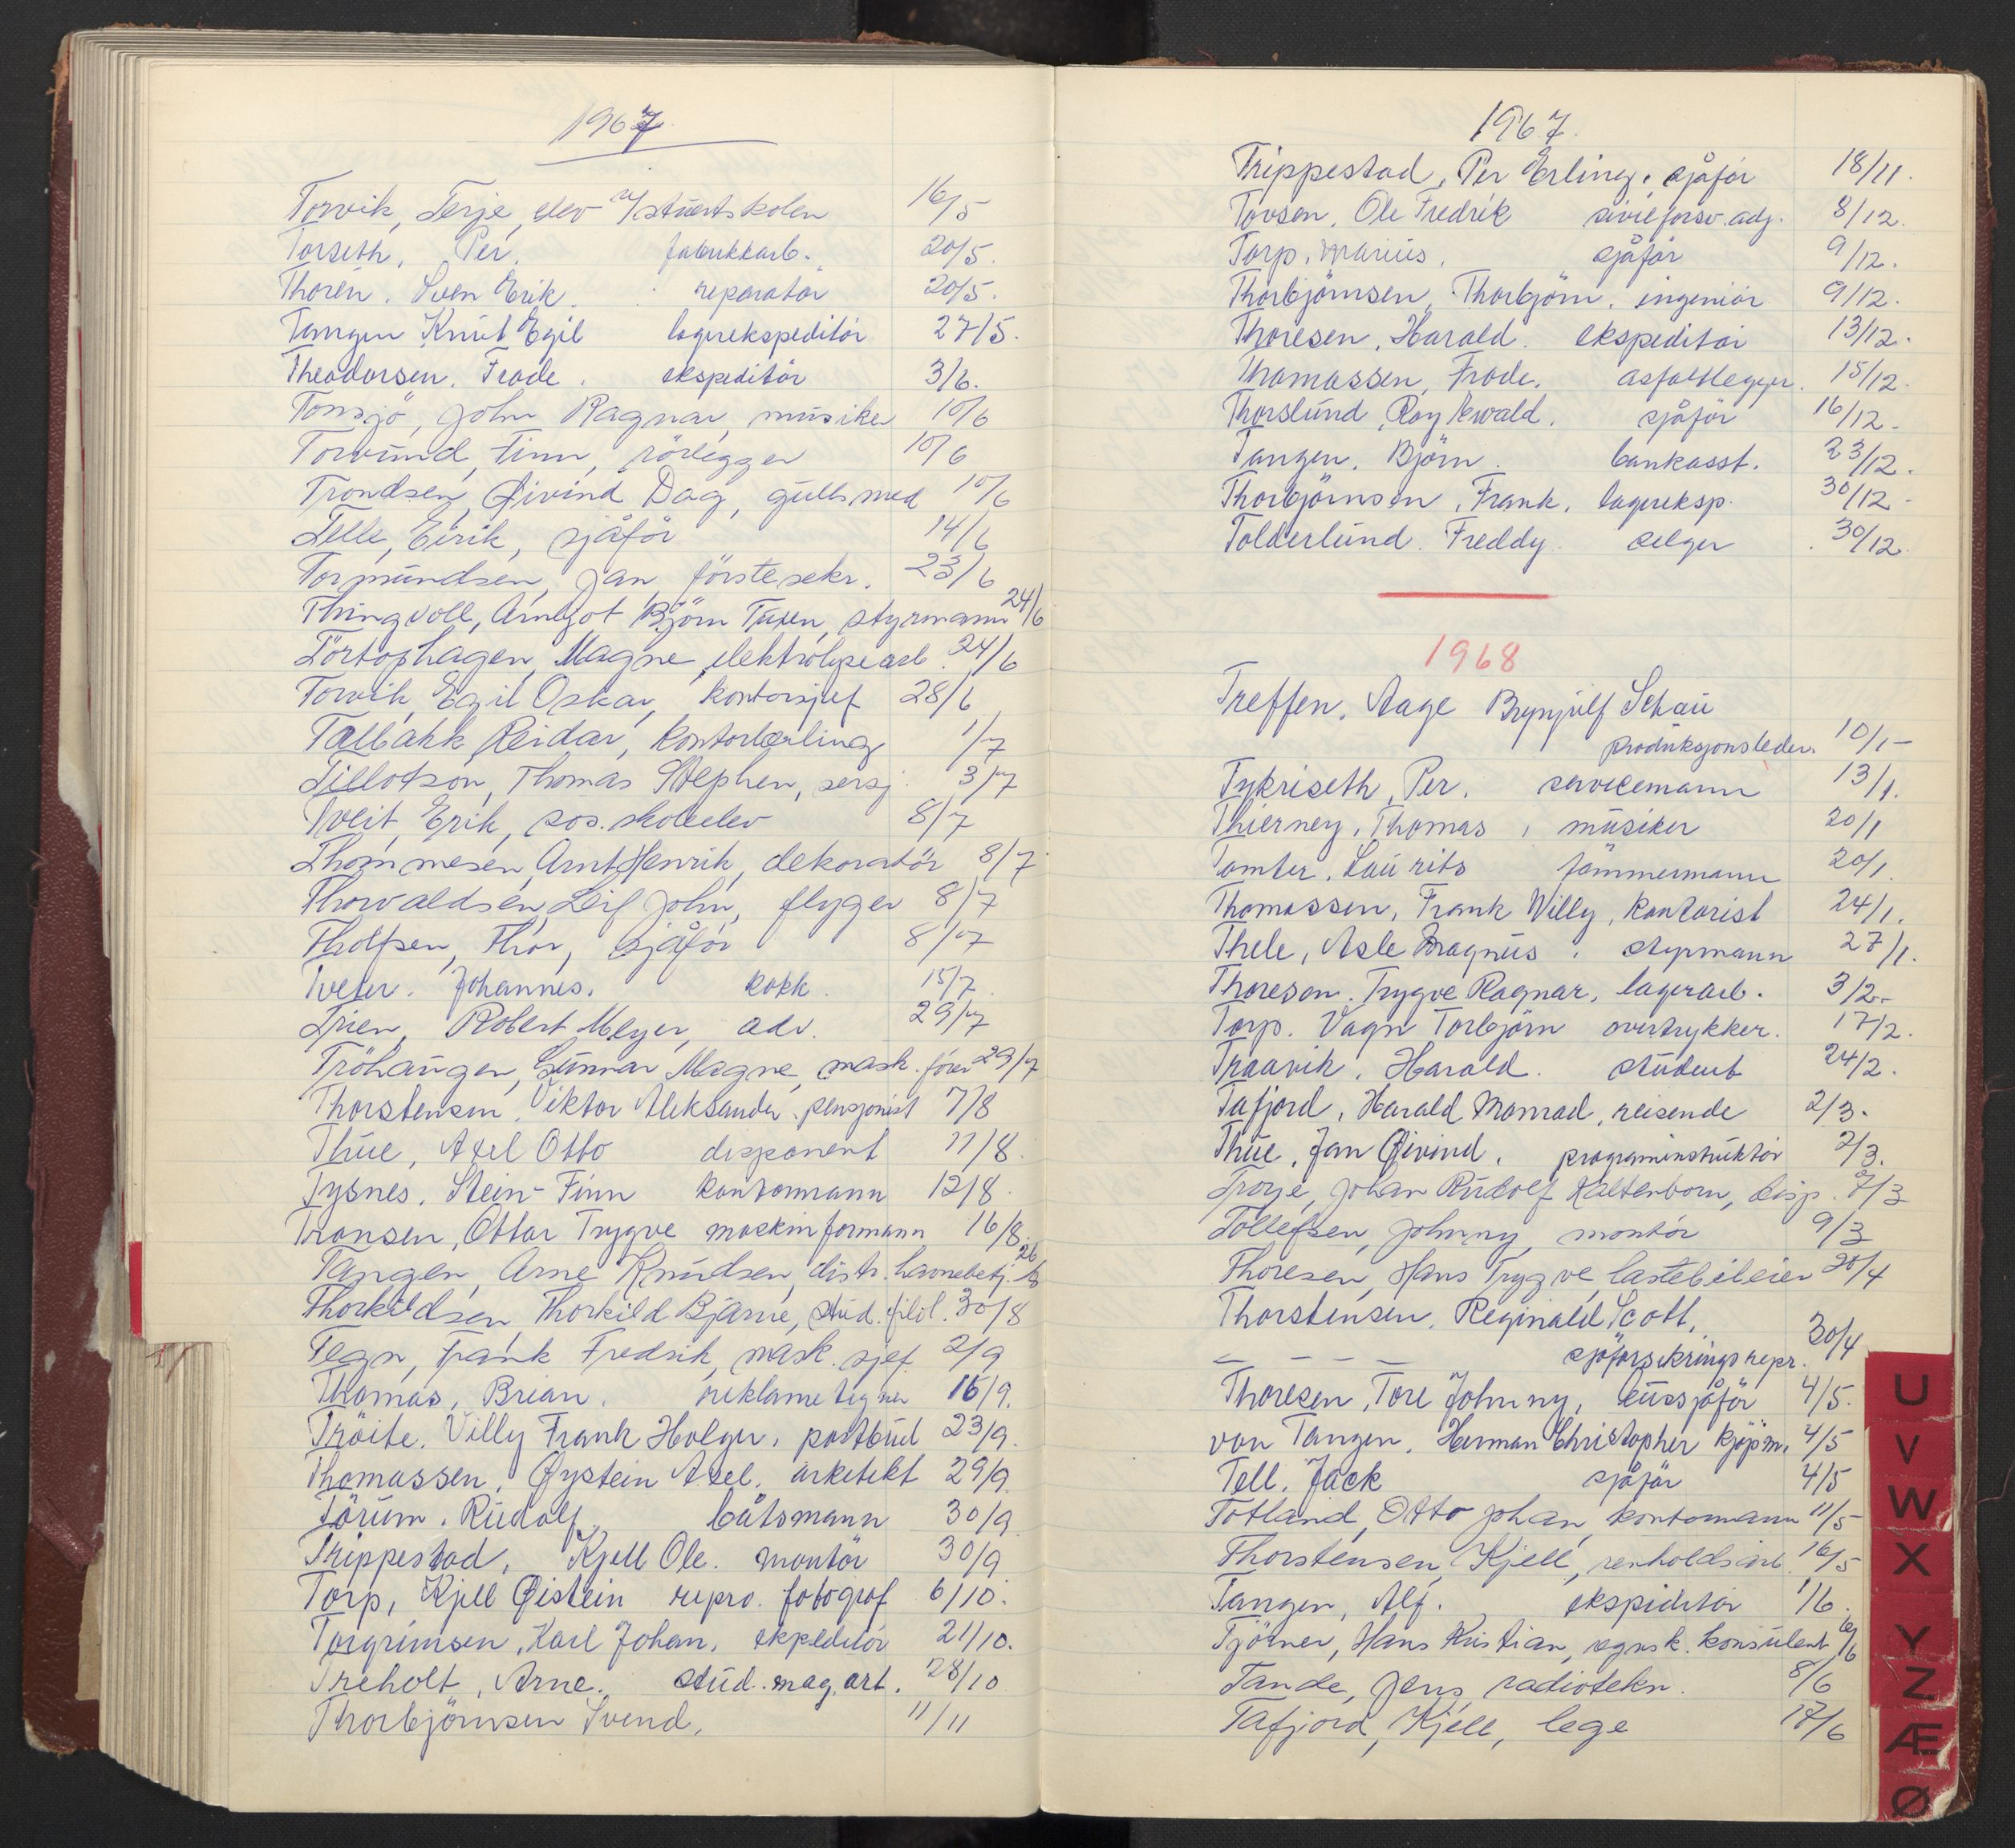 1967
Torvik, Terje, elev v/stuertskolen 16/5
Torseth, Per. fabrikkarb. 20/5.
Thorén. Sven Erik. reparatør 20/5.
Tangen Knut Egil lagerekspeditör 27/5.
Theodorsen, Frode. ekspeditör 3/6.
Tonsjö, John Ragnar, musiker 10/6
Torvund, Finn, rörlegger 10/6
Trondsen, Øivind Dag, gullsmed 10/6
Telle, Eirik, sjåför 14/6
Tormundsen, Jan, förstesekr. 23/6
Thingvoll, Arneljot Björn Tuxen, styrmann 24/6
Törtophagen, Magne, elektrolysearb. 24/6
Torvik, Egil Oskar, kontorsjef 28/6
Talbakk, Reidar, kontorlærling 1/7
Tillotson, Thomas Stephen, sersj. 3/7
Tveit, Erik, sos.skoleelev 8/7
Thommesen, Arnt Henrik, dekoratör 8/7
Thorvaldsen, Leif John, flyger 8/7
Tholfsen, Thor, sjåför 8/7
Tveter. Johannes. kokk. 15/7
Trien, Robert Meyer, adv. 29/7
Tröhaugen, Gunnar Magne, mask.fører 29/7
Thorstensen, Viktor Aleksander. pensjonist 7/8
Thue, Axel Otto disponent 11/8.
Tysnes. Stein-Finn kontormann 12/8.
Transen, Ottar Trygve maskinformann 16/8.
Tangen, Arne Knudsen, distr. havnebetj. 26/8
Thorkildsen, Thorkild Bjarne, stud. filol. 30/8
Tegn, Frank Fredrik, mask.sjef. 2/9
Thomas, Brian. reklametegner 16/9.
Tröite. Villy Frank Holger. postbud 23/9.
Thomassen. Øystein Axel. arkitekt 29/9.
Törum. Rudolf. båtsmann 30/9.
Trippestad, Kjell Ole. montör 30/9
Torp, Kjell Øistein repro. fotograf 6/10.
Torgrimsen, Karl Johan. ekspeditör 21/10.
Treholt, Arne. stud. mag. art. 28/10
Thorbjörnsen Svend, 11/11
1967.
Trippestad, Per Erling. sjåför 18/11.
Tovsen, Ole Fredrik sivilforsv. adj. 8/12.
Torp, Marius. sjåför 9/12.
Thorbjörnsen, Thorbjörn. ingeniör 9/12.
Thoresen, Harald. ekspeditör 13/12.
Thomassen, Frode. asfaltlegger. 15/12.
Thorslund, Roy Ewald. sjåför 16/12.
Tangen, Björn. bankasst. 23/12.
Thorbjörnsen, Frank, lagereksp. 30/12.
Tolderlund. Freddy. selger 30/12.
1968
Treffen, Aage Brynjulf Schau
produksjonsleder. 10/1-
Tykriseth, Per. servicemann 13/1.
Thierney, Thomas, musiker 20/1
Tomter. Laurits tømmermann 20/1.
Thomassen, Frank Willy, kontorist 24/1.
Thele, Asle Magnus. styrmann 27/1.
Thoresen. Trygve Ragnar, lagerarb. 3/2.-
Torp. Vagn Torbjörn overtrykker. 17/2.
Traavik, Harald. student 24/2.
Tafjord, Harald Monrad, reisende 2/3.
Thue, Jan Øivind. programinstruktör 2/3.
Troye, Johan Rudolf Kaltenborn, disp. 7/3
Tollefsen, Johnny, montör 9/3
Thoresen, Hans Trygve, lastebileier 20/4
Thorstensen, Reginald Scott,
— — — — sjøforsikringsrepr. 30/4
Thoresen, Tore Johnny, bussjåför 4/5.
von Tangen. Herman Christopher kjøpm. 4/5
Tell. Jack sjåför 4/5
Totland, Otto Johan, kontormann 11/5
Thorstensen, Kjell, renholdsarb. 16/5
Tangen, Alf. ekspeditör 1/6.
Tjörner, Hans Kristian, regnsk.konsulent 6/6
Tande, Jens, radiotekn. 8/6
Tafjord, Kjell, lege 17/6
U
V
W
X
Y
Z
Æ
Ø